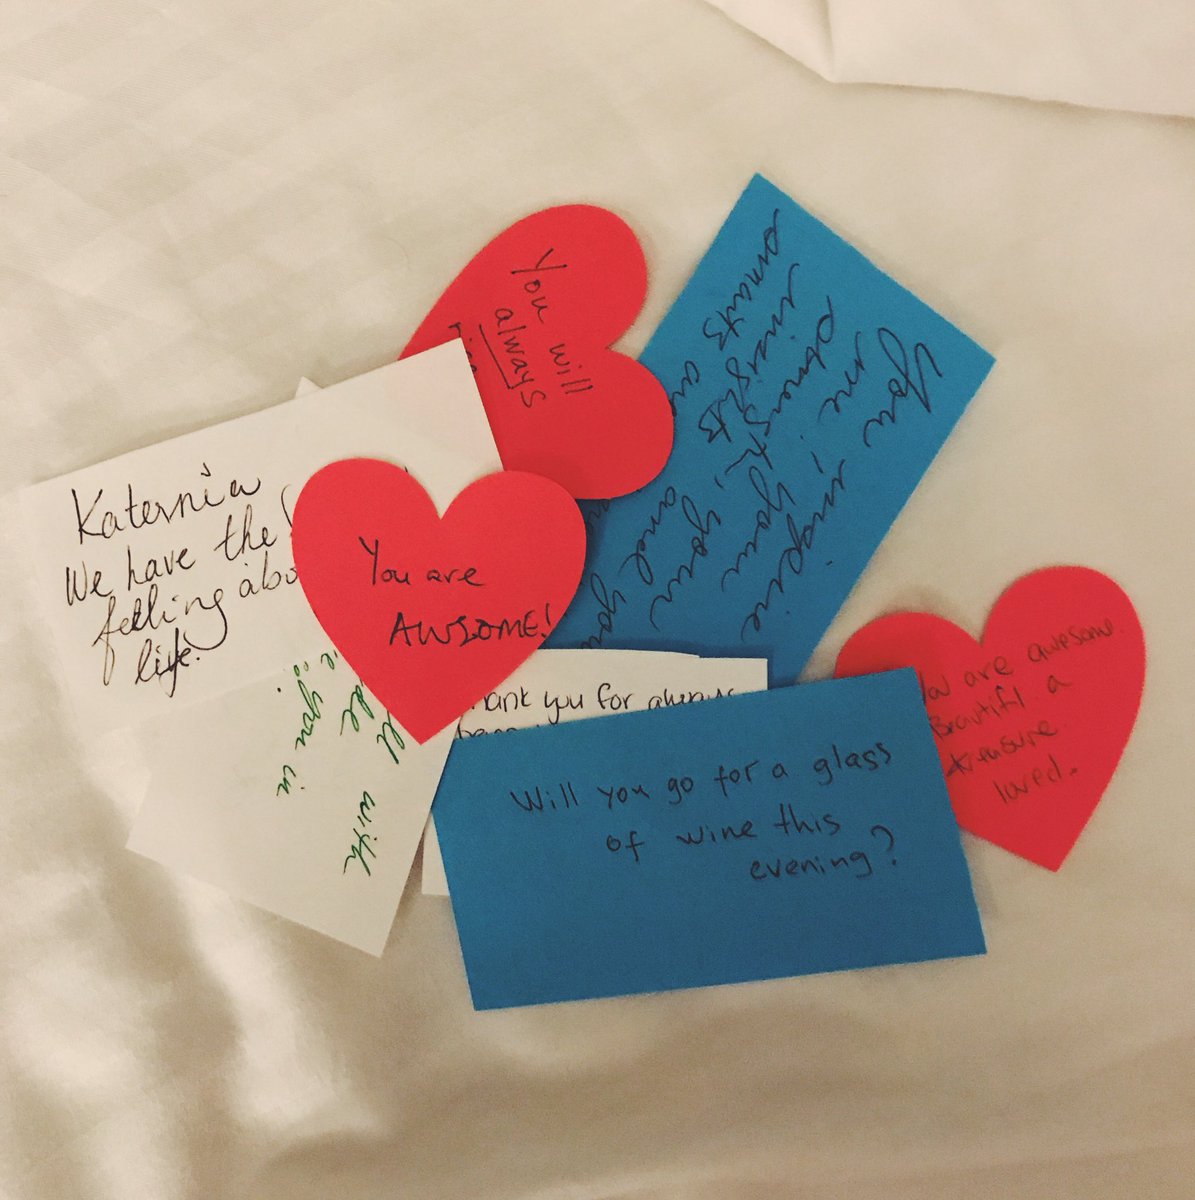 You will
always
You inspire
me, your
strength, your
insights and
Katernia
We have the
feeling abo
life.
You are
AWSOME!
with
you in
hank you for always
You are awesome.
Beautifl a
treasure
loved.
Will you go for a glass
of wine this
evening?